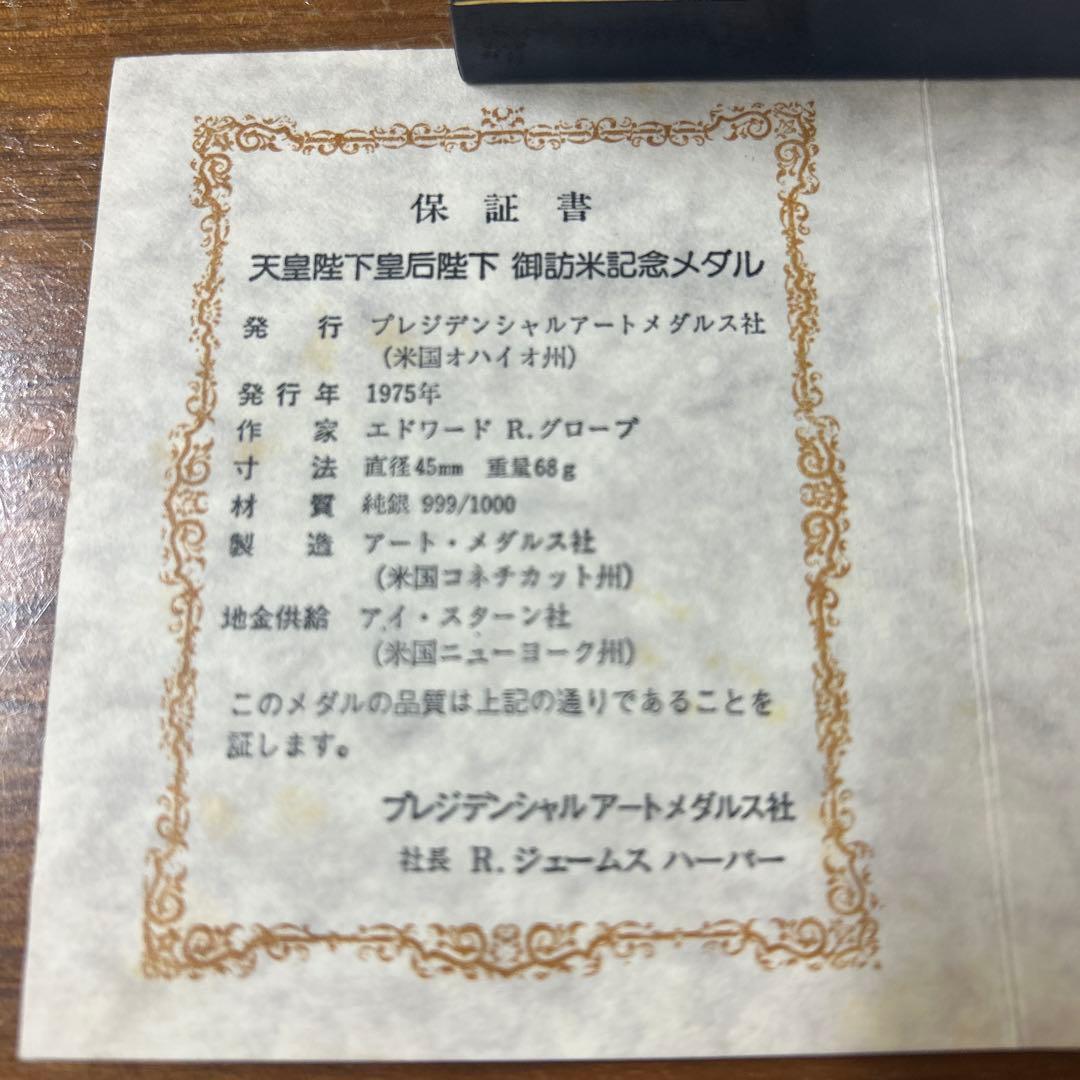 保証書
天皇陛下皇后陛下 御訪米記念メダル
発行 プレジデンシャルアートメダルス社
(米国オハイオ州)
発行年 1975年
作家 エドワード R.グローブ
寸法 直径45mm 重量68g
材質 純銀 999/1000
製造 アート・メダルス社
(米国コネチカット州)
地金供給 アイ・スターン社
(米国ニューヨーク州)
このメダルの品質は上記の通りであることを
証します。
プレジデンシャルアートメダルス社
社長 R.ジェームス ハーパー